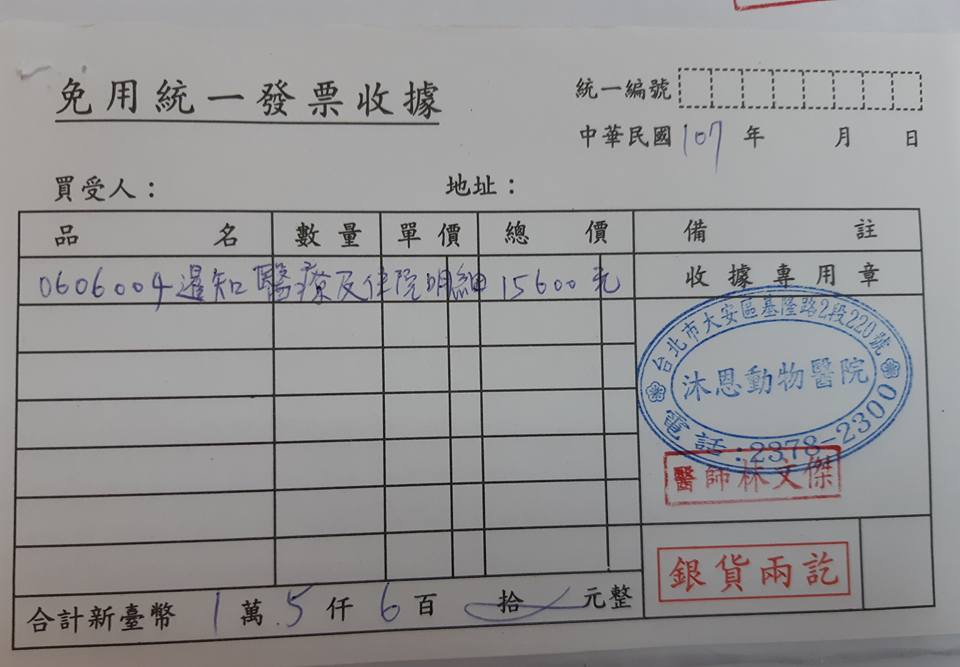 免用統一發票收據
統一編號
中華民國107年 月 日
買受人： 地址：
品名 數量 單價 總價 備註
0606004 暹知 醫療及住院明細 15600元
收據專用章
台北市大安區基隆路2段220號
沐恩動物醫院
電話：2378-2300
醫師林文傑
銀貨兩訖
合計新臺幣 1萬5仟6百 拾 元整